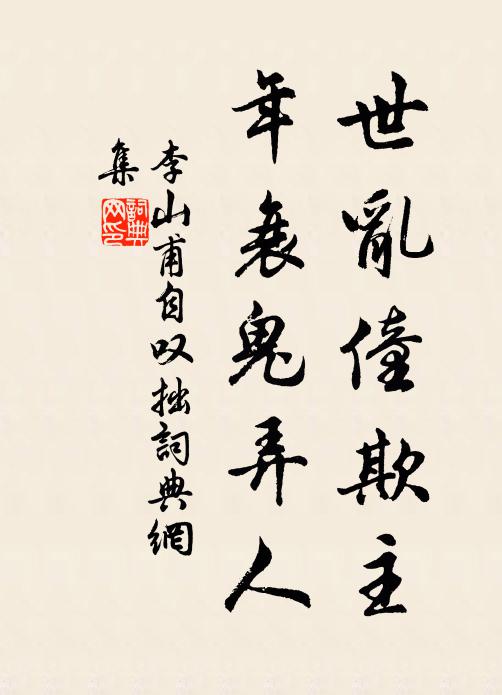 世亂僮欺主
年衰鬼弄人
李山甫自叹拙詞典網
集
詞典
网印